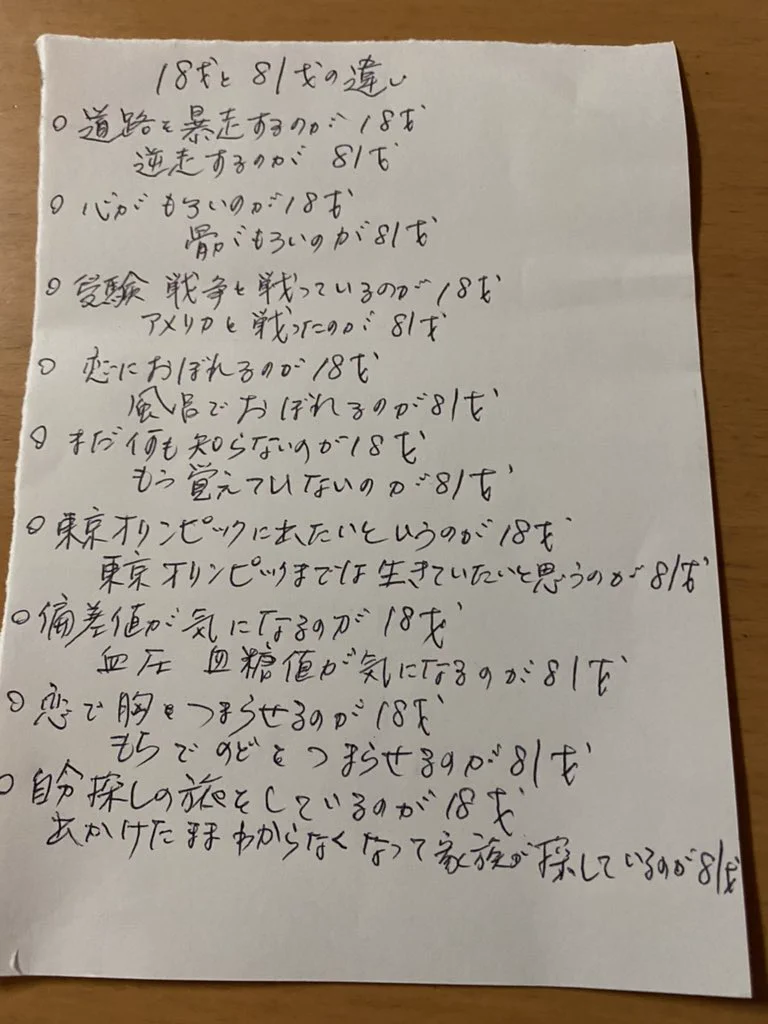 18才と81才の違い
○ 道路を暴走するのが18才
逆走するのが 81才
○ 心がもろいのが18才
骨がもろいのが81才
○ 受験戦争と戦っているのが18才
アメリカと戦ったのが81才
○ 恋におぼれるのが18才
風呂でおぼれるのが81才
○ まだ何も知らないのが18才
もう覚えていないのが81才
○ 東京オリンピックに出たいというのが18才
東京オリンピックまでは生きていたいと思うのが81才
○ 偏差値が気になるのが18才
血圧 血糖値が気になるのが81才
○ 恋で胸をつまらせるのが18才
もちでのどをつまらせるのが81才
○ 自分探しの旅をしているのが18才
出かけたままわからなくなって家族が探しているのが81才